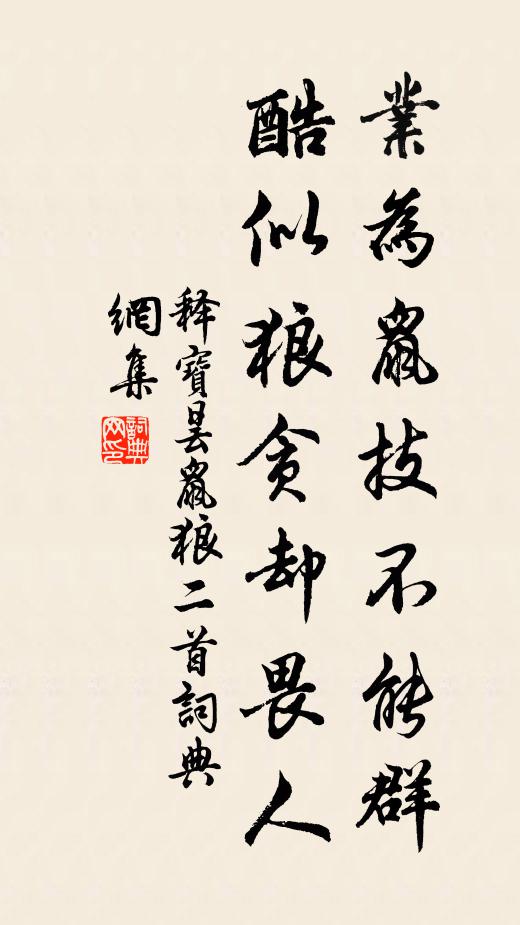 業為鼠技不能群
酷似狼貪却畏人
释寶曇鼠狼二首詞典
網集
詞典
网印